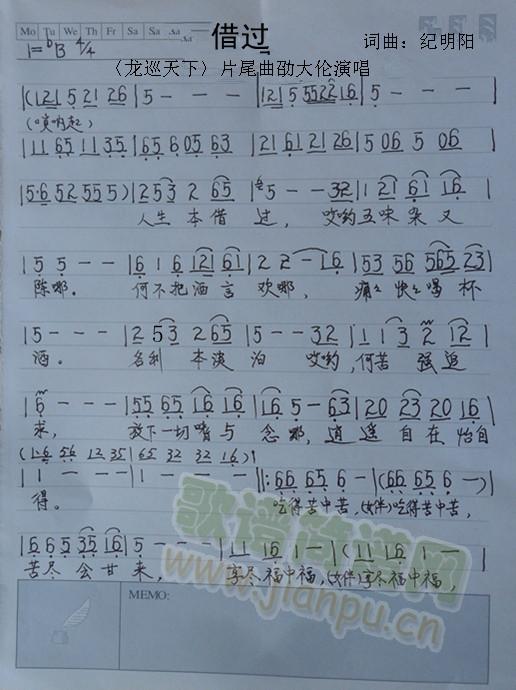 Mo Tu We Th Fr Sa Su
借过
1=ᵇB 4/4
词曲：纪明阳
〈龙巡天下〉片尾曲劭大伦演唱
|(121 5 21 26 |5 - - - |121 5 5522 16 |5 - - - |
(唢呐起)
|11 65 11 35 |65 6 05 63 |21 61 21 26 |5 06 5 06 |
|5·6 52 55 5) |2 53 2 65 |5 - - 32 |1 21 61 16 |
人生 本借 过， 哎哟五味杂又
|5 5 - - |6 1 6 121 61 |2 2 - 16 |53 56 565 23 |
陈哪。 何不把酒言 欢哪， 痛痛快快喝杯
|5 - - - |2 53 2 65 |5 - - 32 |1 1 3 2 12 |
酒。 名利 本淡 泊 哎哟，何苦 强追
|6 - - - |55 65 16 16 |16 5 - 63 |20 23 20 16 |
求， 放下一切嗔与 念哪，逍遥自在怡自
(1·6 56 12 35 |65 32 32 16)|
|1 - - - |1 - - - ||:66 65 6 - |(66 65 6 -)|
得。 吃得苦中苦，(女伴)吃得苦中苦，
|66 5 35 16 |5 - - - |11 16 1 - |(11 16 1 -
苦尽 会甘 来， 享尽福中福，(女伴)享尽福中福，
歌谱简谱网
www.jianpu.cn
MEMO: